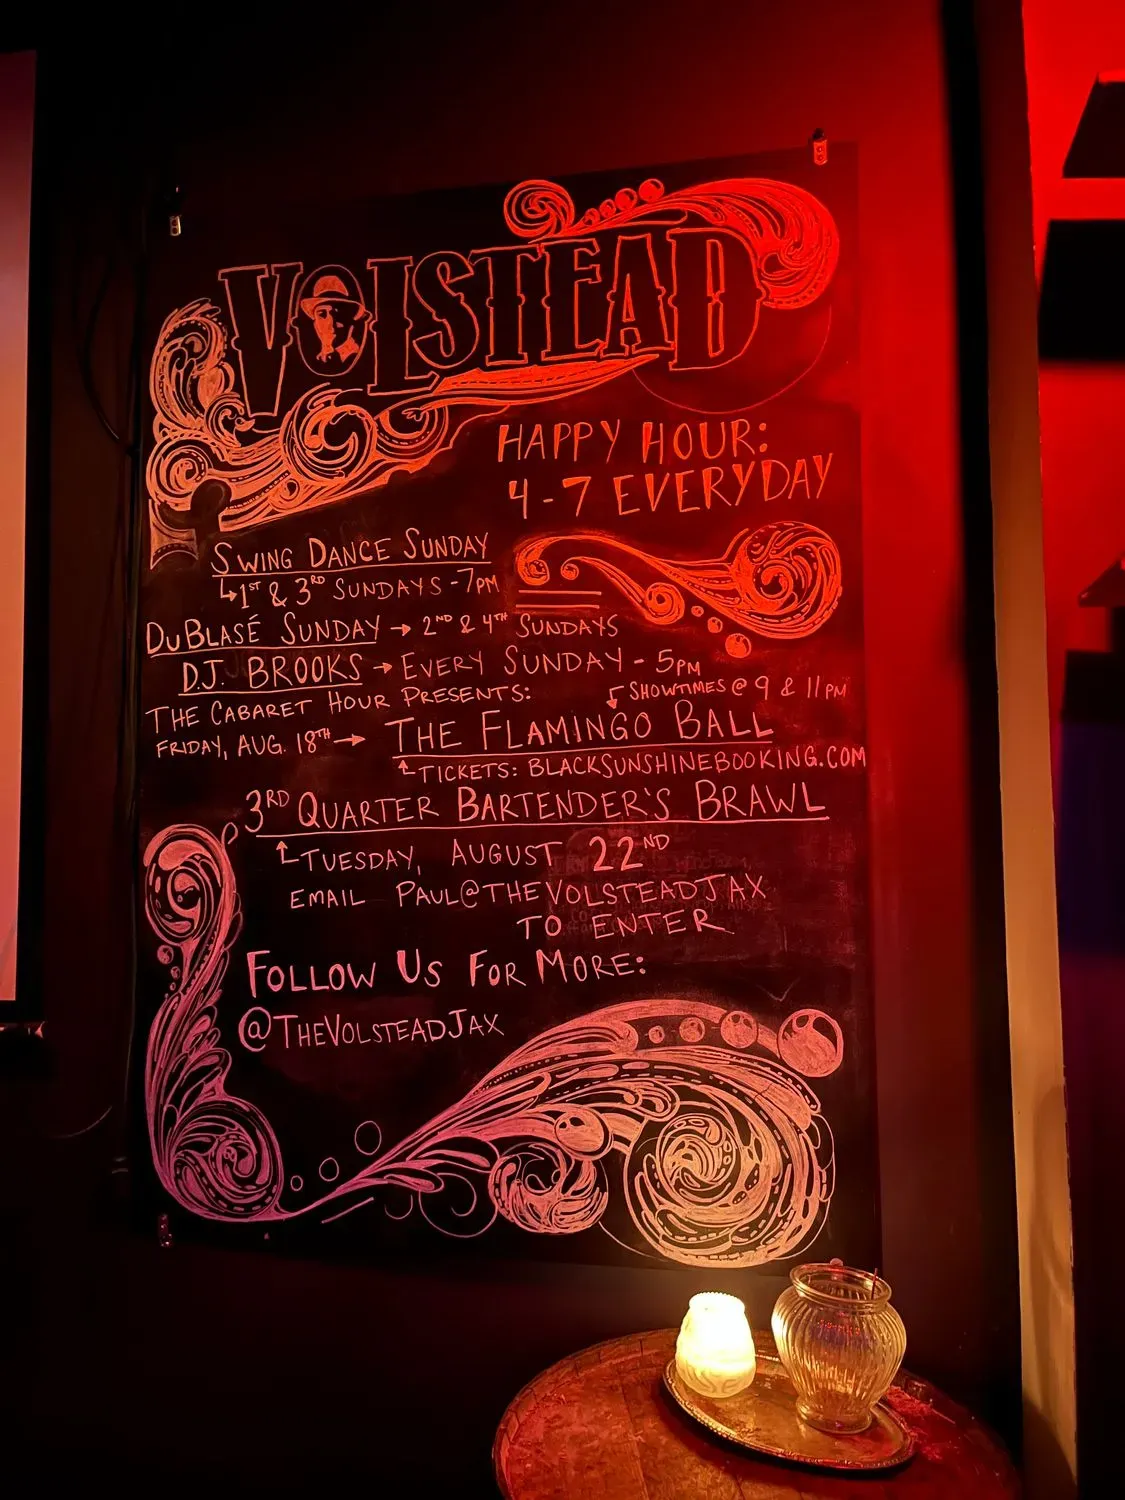 VOLSTEAD
HAPPY HOUR:
4-7 EVERYDAY
SWING DANCE SUNDAY
↳1ST & 3RD SUNDAYS - 7PM
DUBLASÉ SUNDAY → 2ND & 4TH SUNDAYS
D.J. BROOKS → EVERY SUNDAY - 5PM
THE CABARET HOUR PRESENTS:
SHOWTIMES @ 9 & 11PM
FRIDAY, AUG. 18TH → THE FLAMINGO BALL
TICKETS: BLACKSUNSHINEBOOKING.COM
3RD QUARTER BARTENDER'S BRAWL
TUESDAY, AUGUST 22ND
EMAIL PAUL@THEVOLSTEADJAX
TO ENTER
FOLLOW US FOR MORE:
@THEVOLSTEADJAX